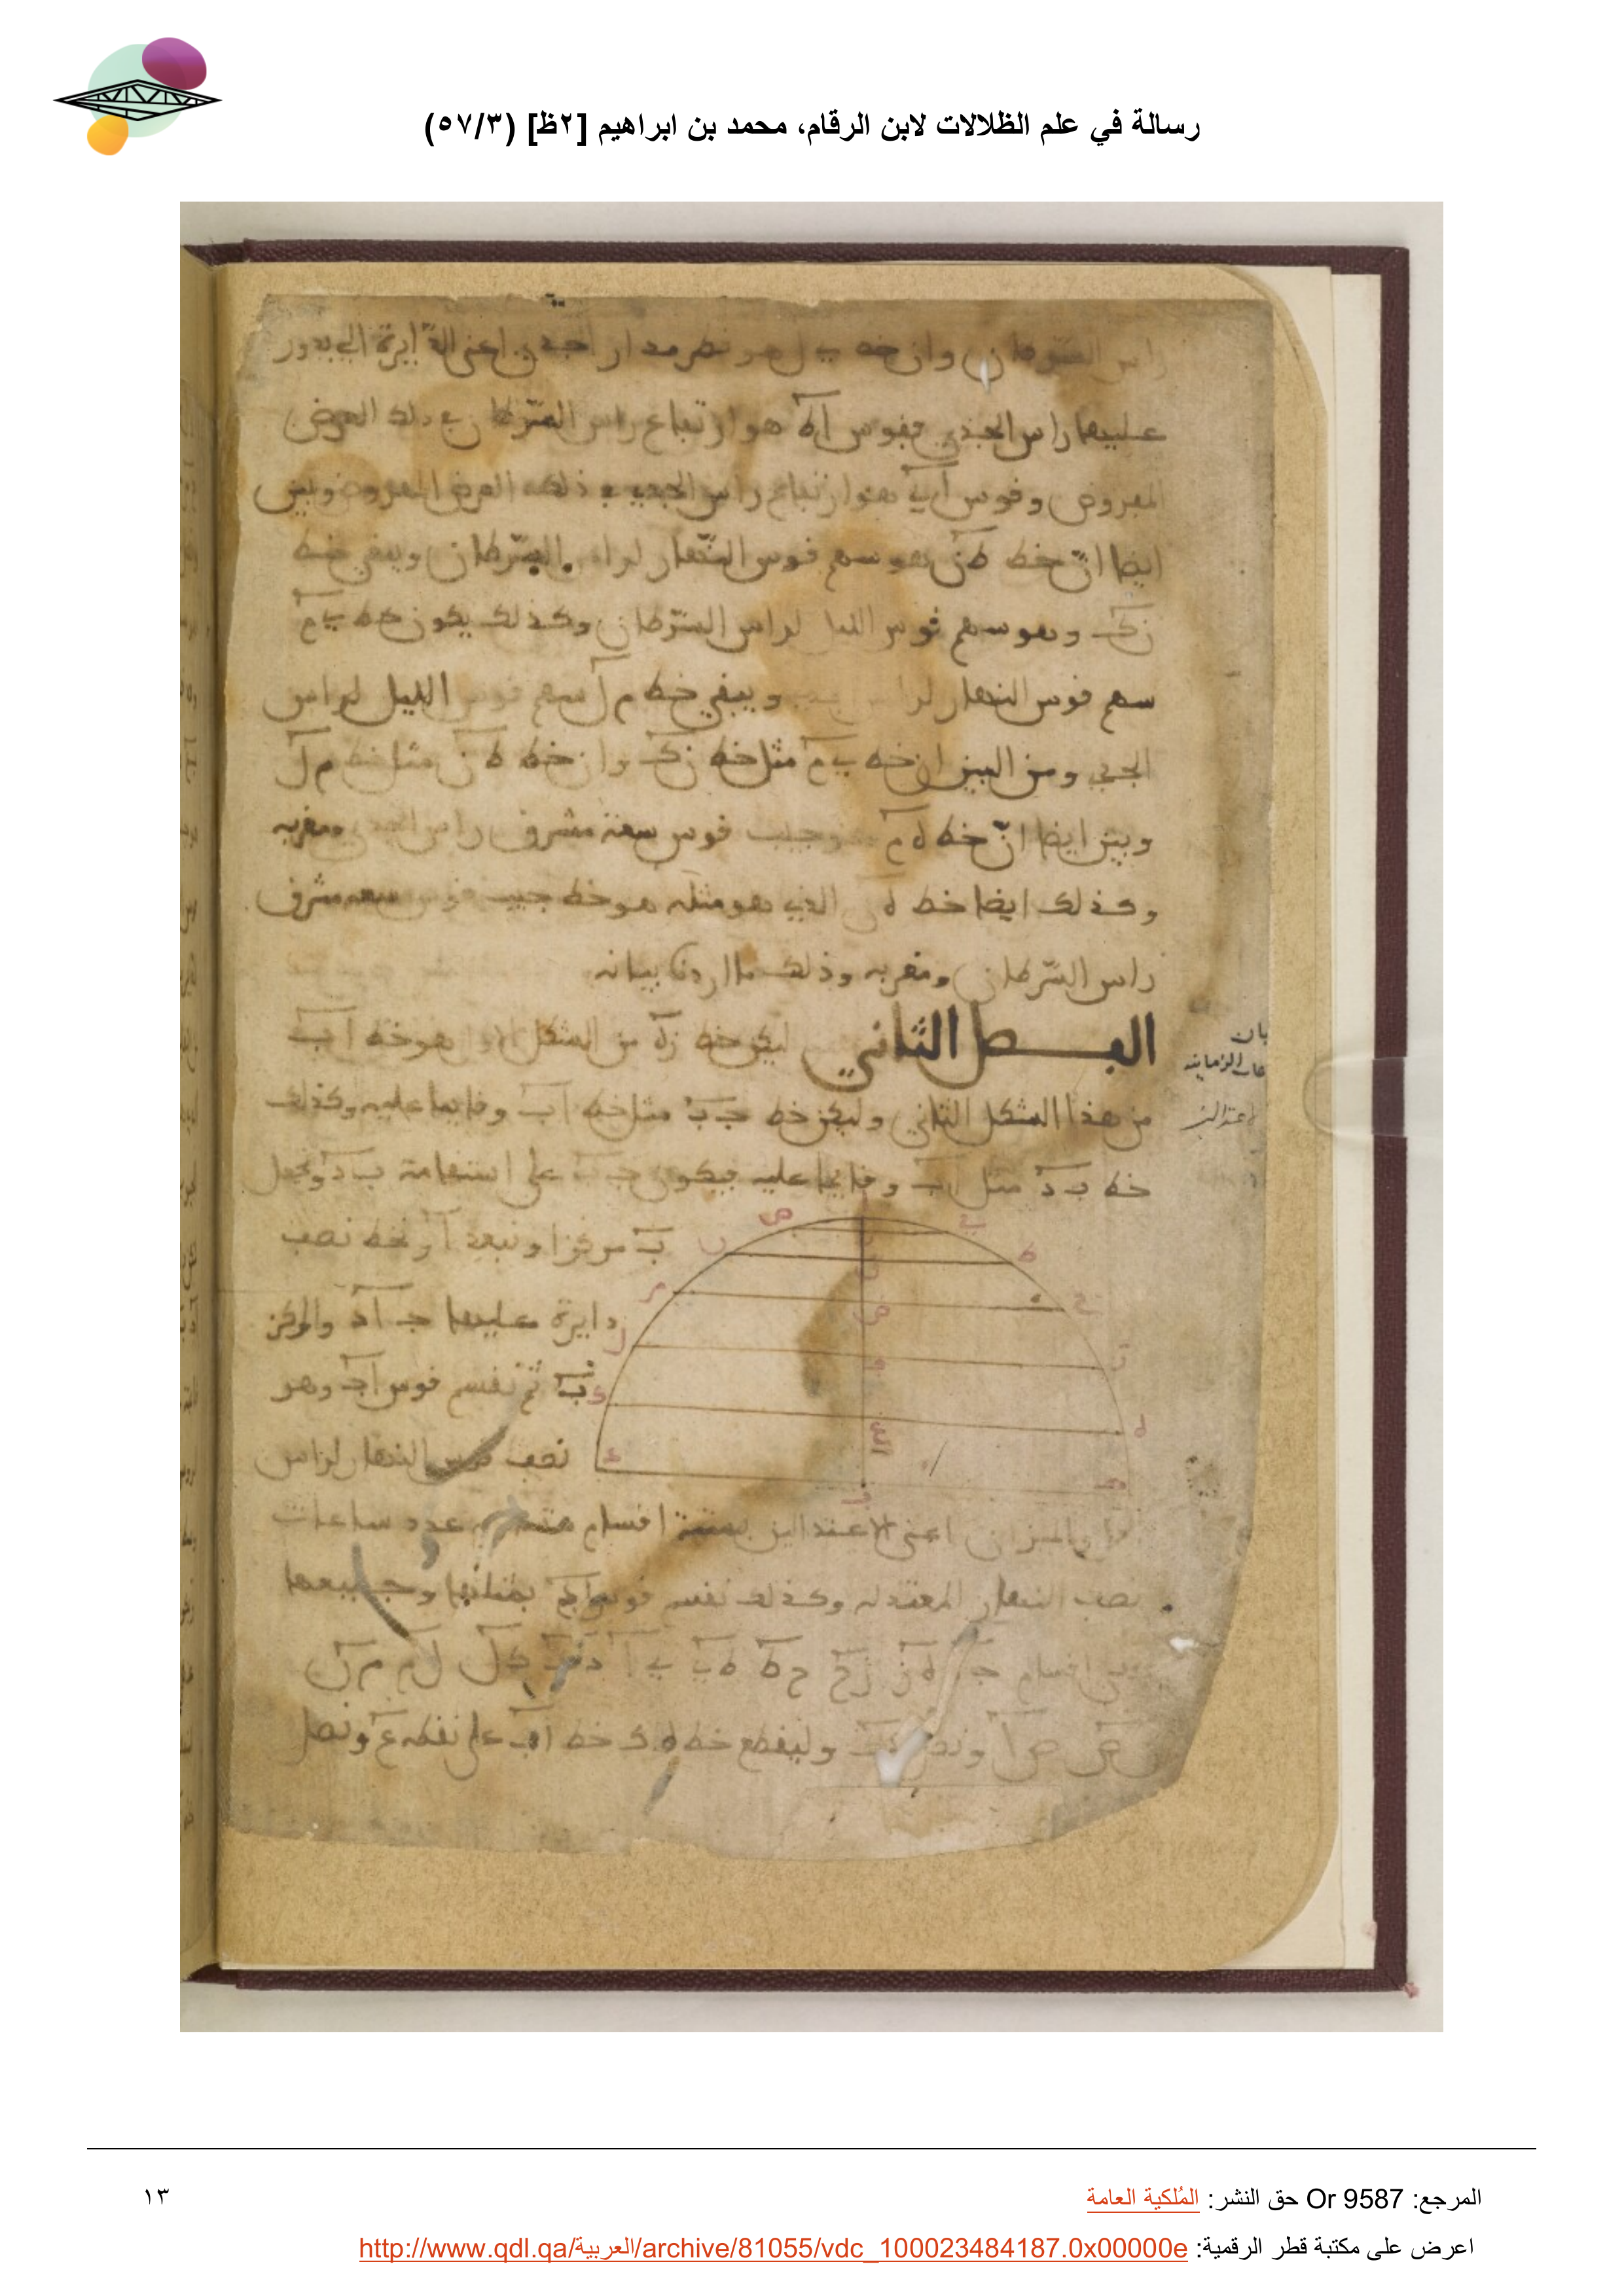 رسالة في علم الظلالات لابن الرقام، محمد بن ابراهيم [٢ظ] (٥٧/٣)
راس السّرطان وان خط ي ل هو قطر مدار الجدي اعني الدّايرة التي يدور
عليها راس الجدي فقوس اط هو ارتفاع راس السّرطان في ذلك العرض
المفروض وقوس اي هو ارتفاع راس الجدي في ذلك العرض المفروض وبين
ايضا انّ خط طن هو سهم قوس النّهار لراس السّرطان ويبقى خط
نك وهو سهم قوس الليل لراس السّرطان وكذلك يكون خط ي م
سهم قوس النهار لراس ويبقى خط م ل سهم قوس الليل لراس
الجدي ومن البين ان خط ي م مثل خط نك وان خط ط ن مثل خط م ل
وبين ايضا انّ خط ه م هو جيب قوس سعة مشرق راس الجدي ومغربه
وكذلك ايضا خط ه الذي هو مثله هو خط جيب قوس سعة مشرق
راس السّرطان ومغربه وذلك ما اردنا بيانه
الفصل الثاني ليكن خط زه من الشكل الاول هو خط اب
من هذا الشكل الثاني وليكن خط جب مثل خط اب وقايما عليه وكذلك
خط ب د مثل اب وقايما عليه فيكون جب على استقامة ب د ونجعل
ب مركزا وببعد ا ونخط نصف
دايرة عليها ج اد والمركز
ب ثم نقسم قوس اج وهو
نصف قوس النهار لراس
الحمل والميزان اعني الاعتدالين بستة اقسام عدد ساعات
نصف النهار المعتدله وكذلك نقسم قوس بمثلها وجميعها
اقسام ج ه ز ز ح ح ط ط ي ي ا ك ل ل م م ن
ص ص ا ونصل وليقطع خط ه ك خط اب على نقطه ع ونصل
المرجع: Or 9587 حق النشر: المُلكية العامة
١٣
اعرض على مكتبة قطر الرقمية: http://www.qdl.qa/العربية/archive/81055/vdc_100023484187.0x00000e